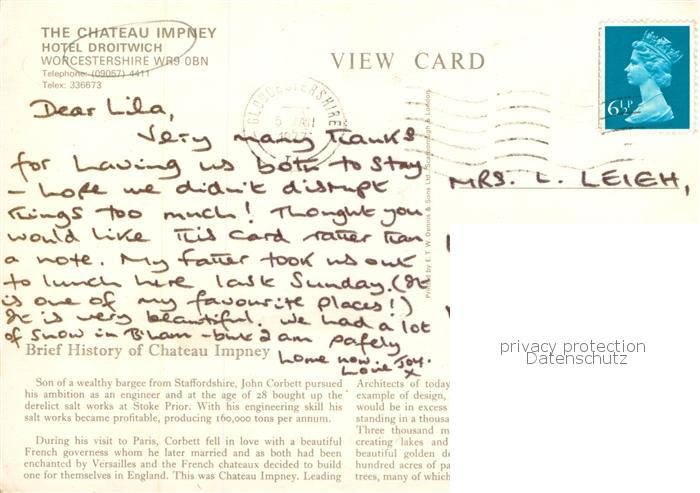 THE CHATEAU IMPNEY
HOTEL DROITWICH
WORCESTERSHIRE WR9 0BN
Telephone: (09057) 4411
Telex: 336673
VIEW CARD
GLOUCESTERSHIRE
5 JAN
1977
6½P
Dear Lila,
Very many thanks
for having us both to stay
- hope we didn't disrupt
things too much! Thought you
would like this card rather than
a note. My father took us out
to lunch here last Sunday. (It
is one of my favourite places!)
It is very beautiful. We had a lot
of snow in B'ham - but I am safely
home now. Joy.
Love x
MRS. L. LEIGH,
Printed by E. T. W. Dennis & Sons Ltd., Scarborough & London
privacy protection
Datenschutz
Brief History of Chateau Impney
Son of a wealthy bargee from Staffordshire, John Corbett pursued
his ambition as an engineer and at the age of 28 bought up the
derelict salt works at Stoke Prior. With his engineering skill his
salt works became profitable, producing 160,000 tons per annum.
During his visit to Paris, Corbett fell in love with a beautiful
French governess whom he later married and as both had been
enchanted by Versailles and the French chateaux decided to build
one for themselves in England. This was Chateau Impney. Leading
Architects of today
example of design,
would be in excess
standing in a thousa
Three thousand m
creating lakes and
beautiful golden d
hundred acres of pa
trees, many of which